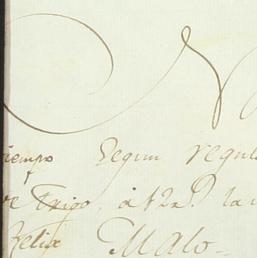 tiempo Segun regula
de Trigo, á 42 r.s la
Felix Malo